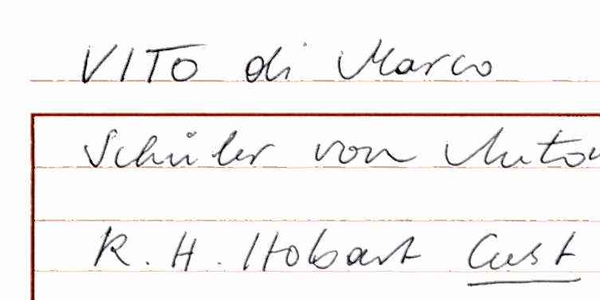 VITO di Marco
Schüler von Anton
R. H. Hobart Cust